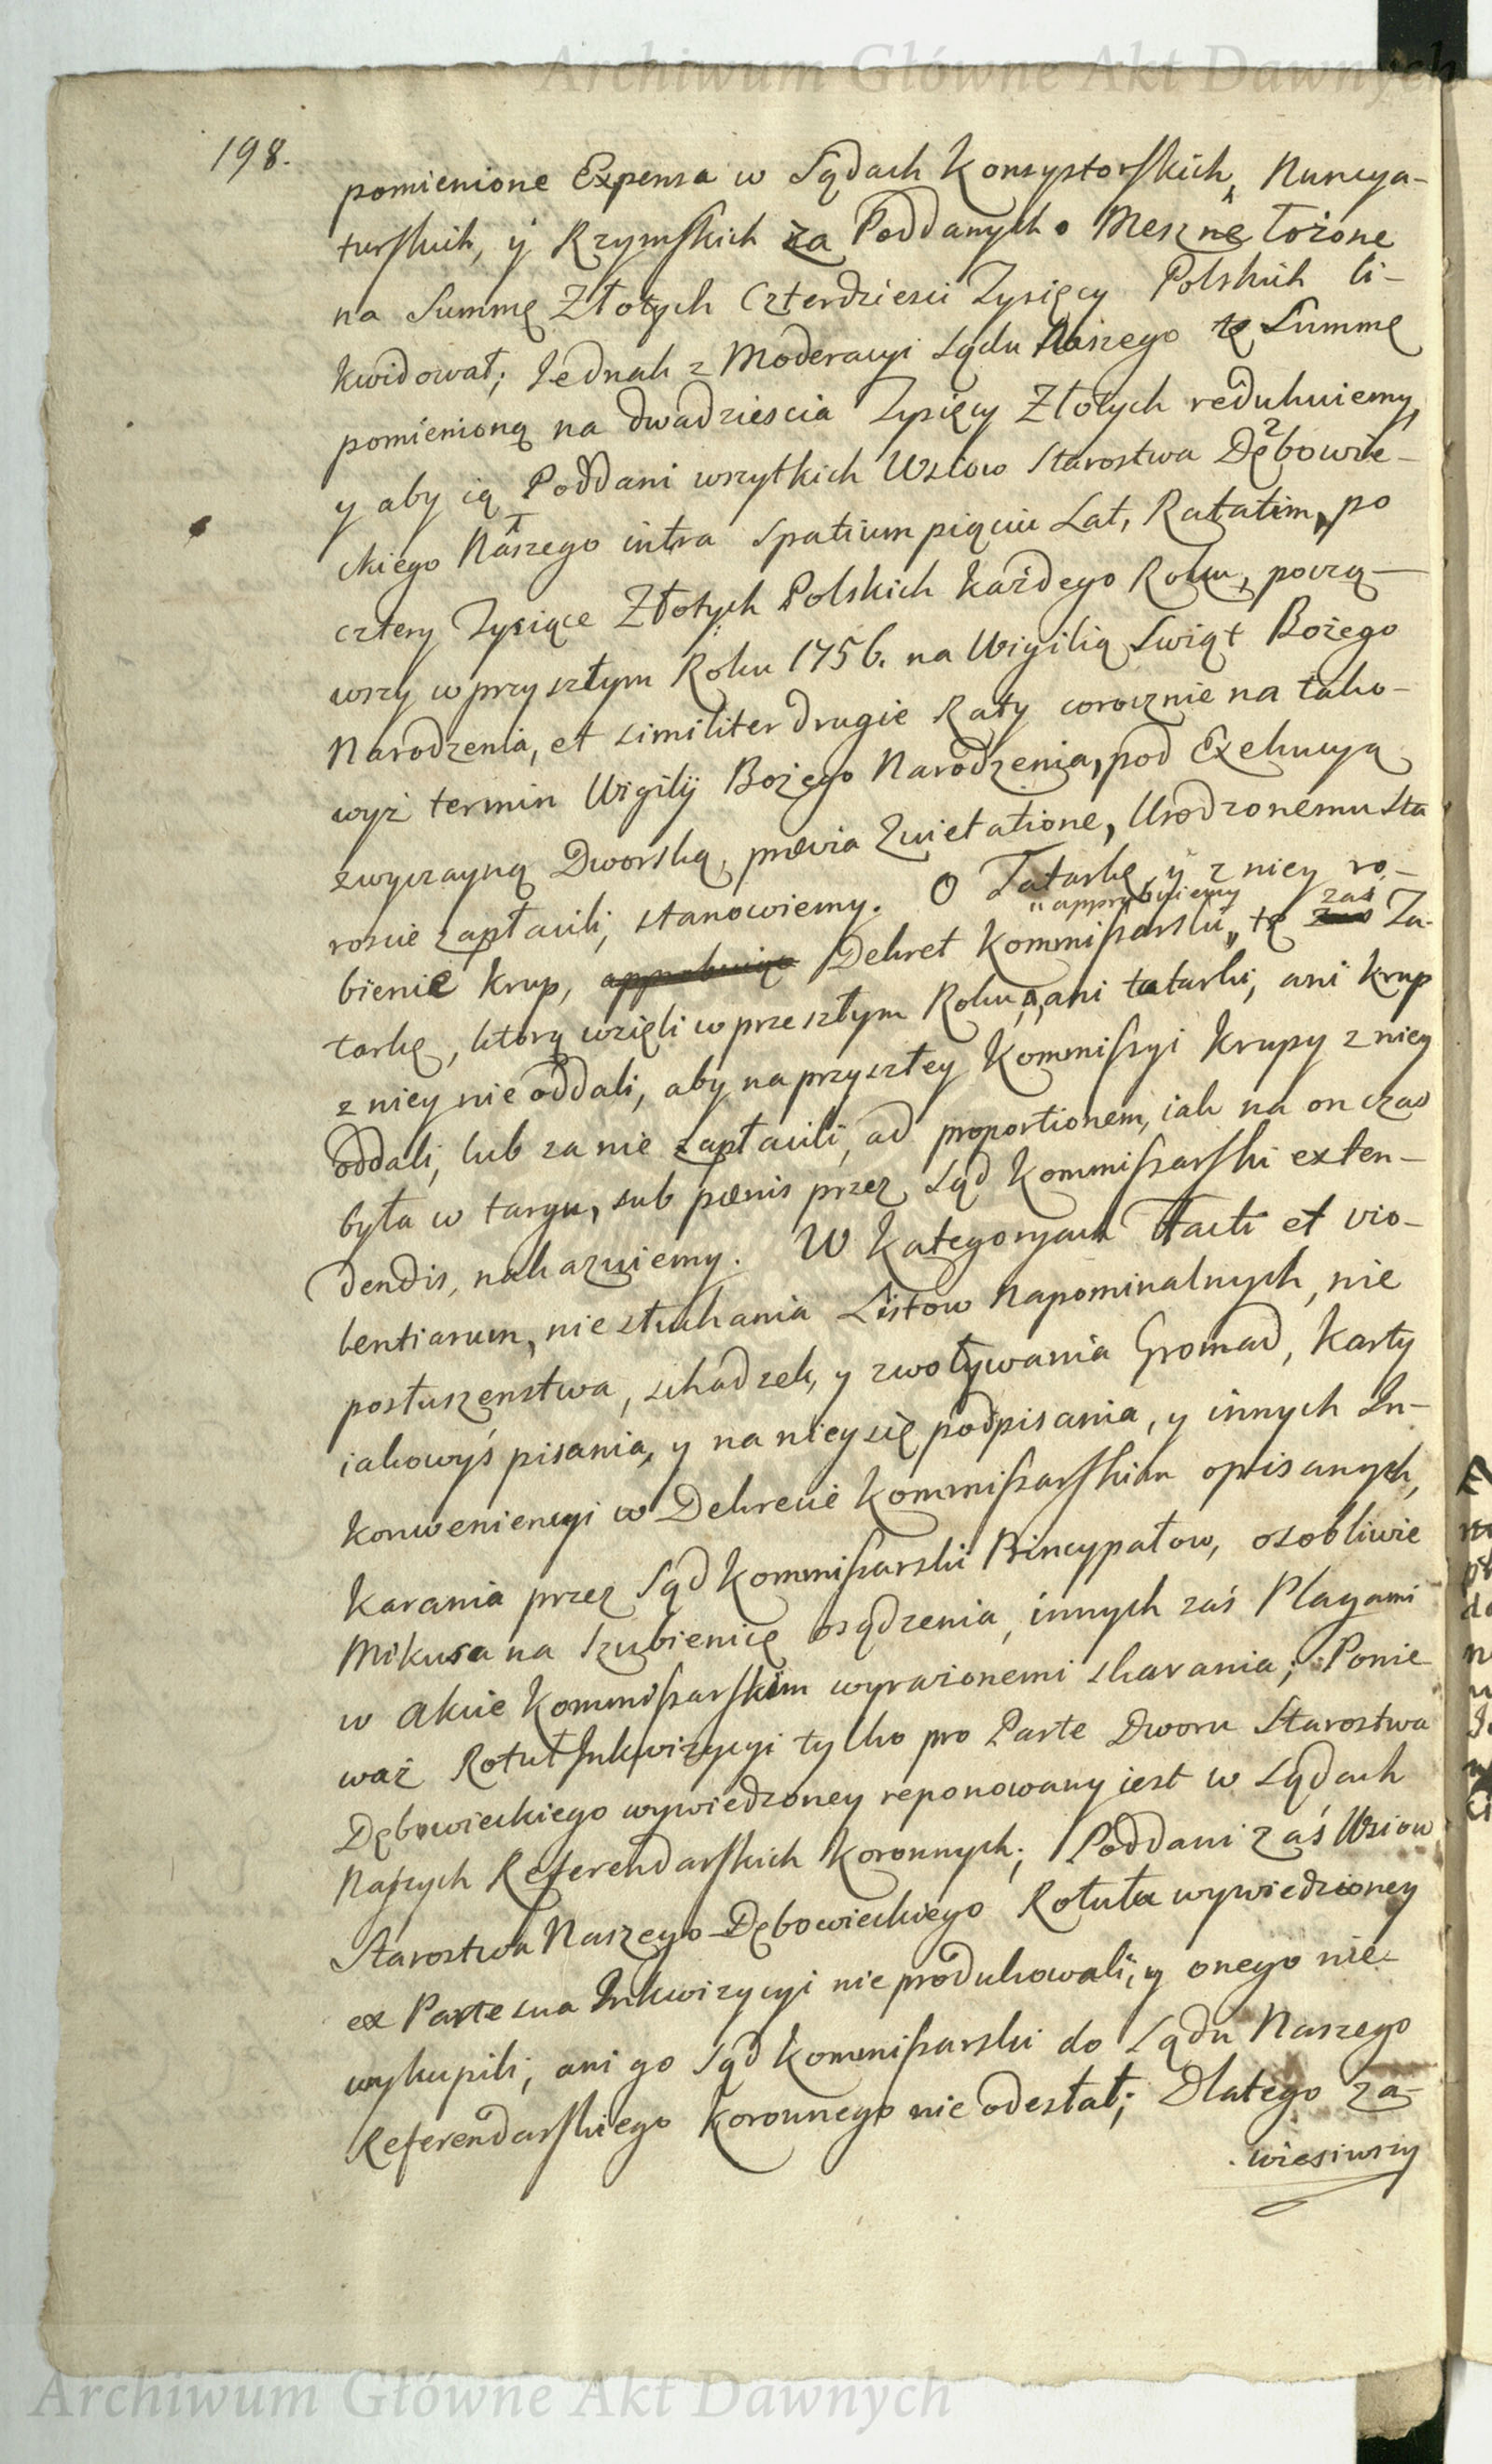 Archiwum Główne Akt Dawnych
198.
pomienione Expensa w Sądach Konsystorskich, Nuncya-
turskich, y Rzymskich za Poddanych o Meszne łożone
na Summę Złotych Czterdziesci Tysięcy Polskich li-
kwidował; Jednak z Moderacyi Sądu Naszego tę Summę
pomienioną na dwadziescia Tysięcy Złotych redukuiemy,
y aby ią Poddani wszytkich Wsiow Starostwa Dębowie-
ckiego Naszego intra spatium pięciu Lat, Ratatim, po
cztery Tysiące Złotych Polskich każdego Roku, począ-
wszy w przyszłym Roku 1756. na Wigilią Swiąt Bożego
Narodzenia, et similiter drugie Raty corocznie na tako-
wyż termin Wigilij Bożego Narodzenia, pod Exekucyą
zwyczayną Dworską, prævia Quietatione, Urodzonemu Sta
roscie zapłacili, stanowiemy. O Tatarkę y z niey ro-
bienie krup, approbuiąc Dekret Kommissarski „ approbuiemy „ tę zas zas Ta-
tarkę, którą wzięli w przeszłym Roku, a ani tatarki, ani krup
z niey nie oddali, aby na przyszłey Kommissyi Krupy z niey
oddali, lub za nie zapłacili, ad proportionem, iak na on czas
była w targu, sub pœnis przez Sąd Kommissarski exten-
dendis, nakazuiemy. W Kategoryach Facti et vio-
lentiarum, niesłuchania Listow Napominalnych, nie
posłuszenstwa, schadzek, y zwoływania Gromad, Karty
iakowyś pisania, y na niey się podpisania, y innych In-
konweniencyi w Dekrecie Kommissarskim opisanych,
Karania przez Sąd Kommissarski Princypałow, osobliwie
Mikusa na szubienicę osądzenia, innych zaś Plagami
w Akcie Kommissarskim wyrażonemi skarania; Ponie
waż Rotuł Inkwizycyi tylko pro Parte Dworu Starostwa
Dębowieckiego wywiedzoney reponowany iest w Sądach
Naszych Referendarskich Koronnych; Poddani zaś Wsiow
Starostwa Naszego Dębowieckiego Rotułu wywiedzioney
ex Parte sua Inkwizycyi nie produkowali, y onego nie-
wykupili, ani go Sąd Kommissarski do Sądu Naszego
Referendarskiego Koronnego nie odesłał; Dlatego za-
wiesiwszy
Archiwum Główne Akt Dawnych